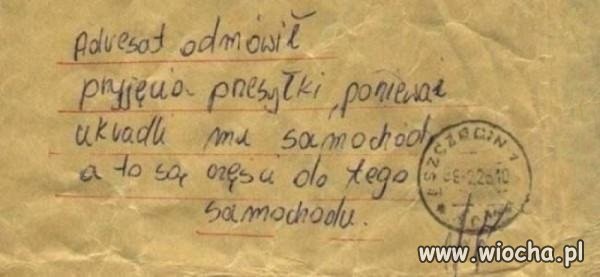 Adresat odmówił
przyjęcia przesyłki, ponieważ
ukradli mu samochód
a to są części do tego
samochodu.
SZCZECIN 1
www.wiocha.pl